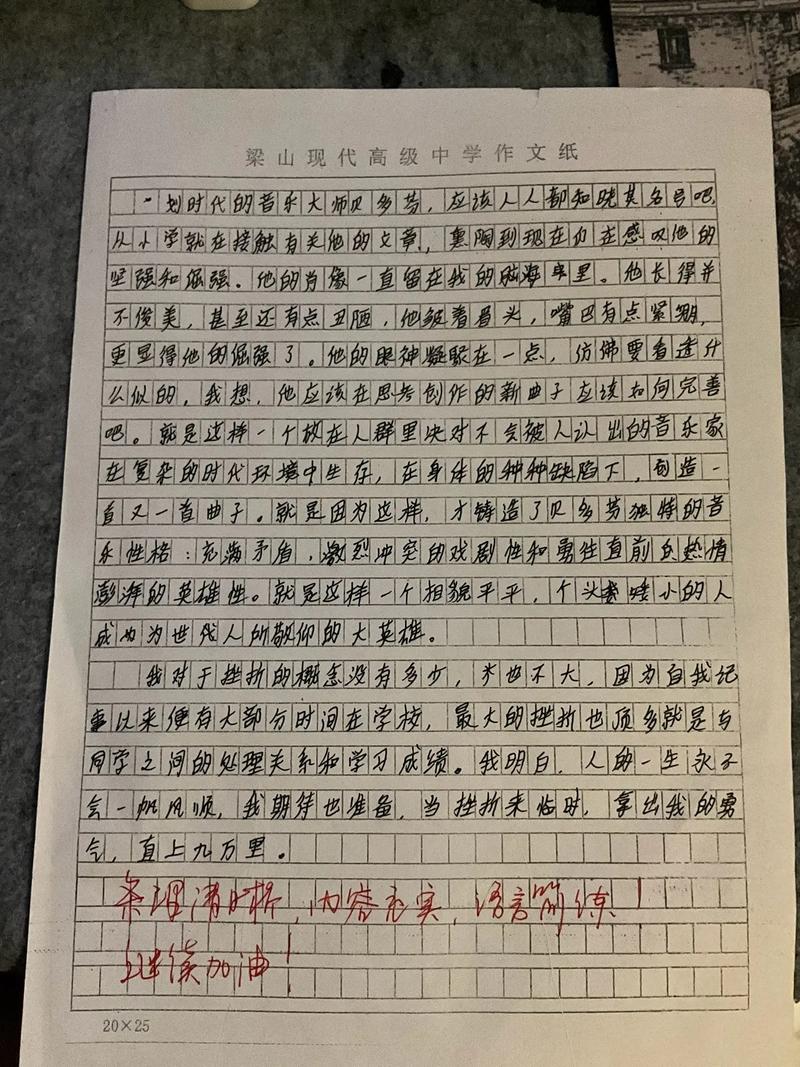 梁山现代高级中学作文纸
划时代的音乐大师贝多芬，应该人人都知晓其名号吧，
从小学就在接触有关他的文章，熏陶到现在仍在感叹他的
坚强和倔强。他的肖像一直留在我的脑海里。他长得并
不俊美，甚至还有点丑陋，他皱着眉头，嘴巴有点紧绷，
更显得他的倔强了。他的眼神凝聚在一点，仿佛要看透什
么似的，我想，他应该在思考创作的新曲子应该如何完善
吧。就是这样一个放在人群里决对不会被人认出的音乐家
在复杂的时代环境中生存，在身体的种种缺陷下，创造一
首又一首曲子。就是因为这样，才铸造了贝多芬独特的音
乐性格：充满矛盾，激烈冲突的戏剧性和勇往直前且热情
澎湃的英雄性。就是这样一个相貌平平，个头矮小的人
成为为世代人所敬仰的大英雄。
我对于挫折的概念没有多少，也不大，因为自我记
事以来便有大部分时间在学校，最大的挫折也顶多就是与
同学之间的处理关系和学习成绩。我明白，人的一生永不
会一帆风顺，我期待也准备，当挫折来临时，拿出我的勇
气，直上九万里。
条理清晰，内容充实，语言简练！
继续加油！
20×25